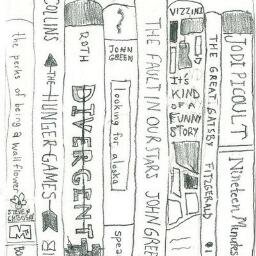 the perks of being a wallflower
STEPHEN CHBOSKY
COLLINS
THE HUNGER GAMES
ROTH
DIVERGENT
JOHN GREEN
looking for alaska
spea
THE FAULT IN OUR STARS JOHN GREE
VIZZINI
IT'S
KIND
OF A
FUNNY
STORY
THE GREAT GATSBY FITZGERALD
JODI PICOULT
Nineteen Minutes